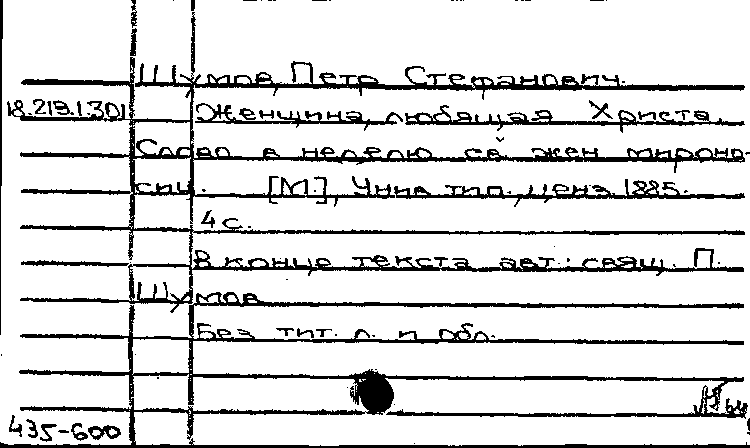 Шумов, Петр Стефанович.
18.219.1.301 Женщина, любящая Христа.
Слово в неделю св. жен мироно-
сиц. [М.], Унив тип., ценз. 1885.
4 с.
В конце текста авт.: свящ. П.
Шумов
Без тит. л. и обл.
64
435-600